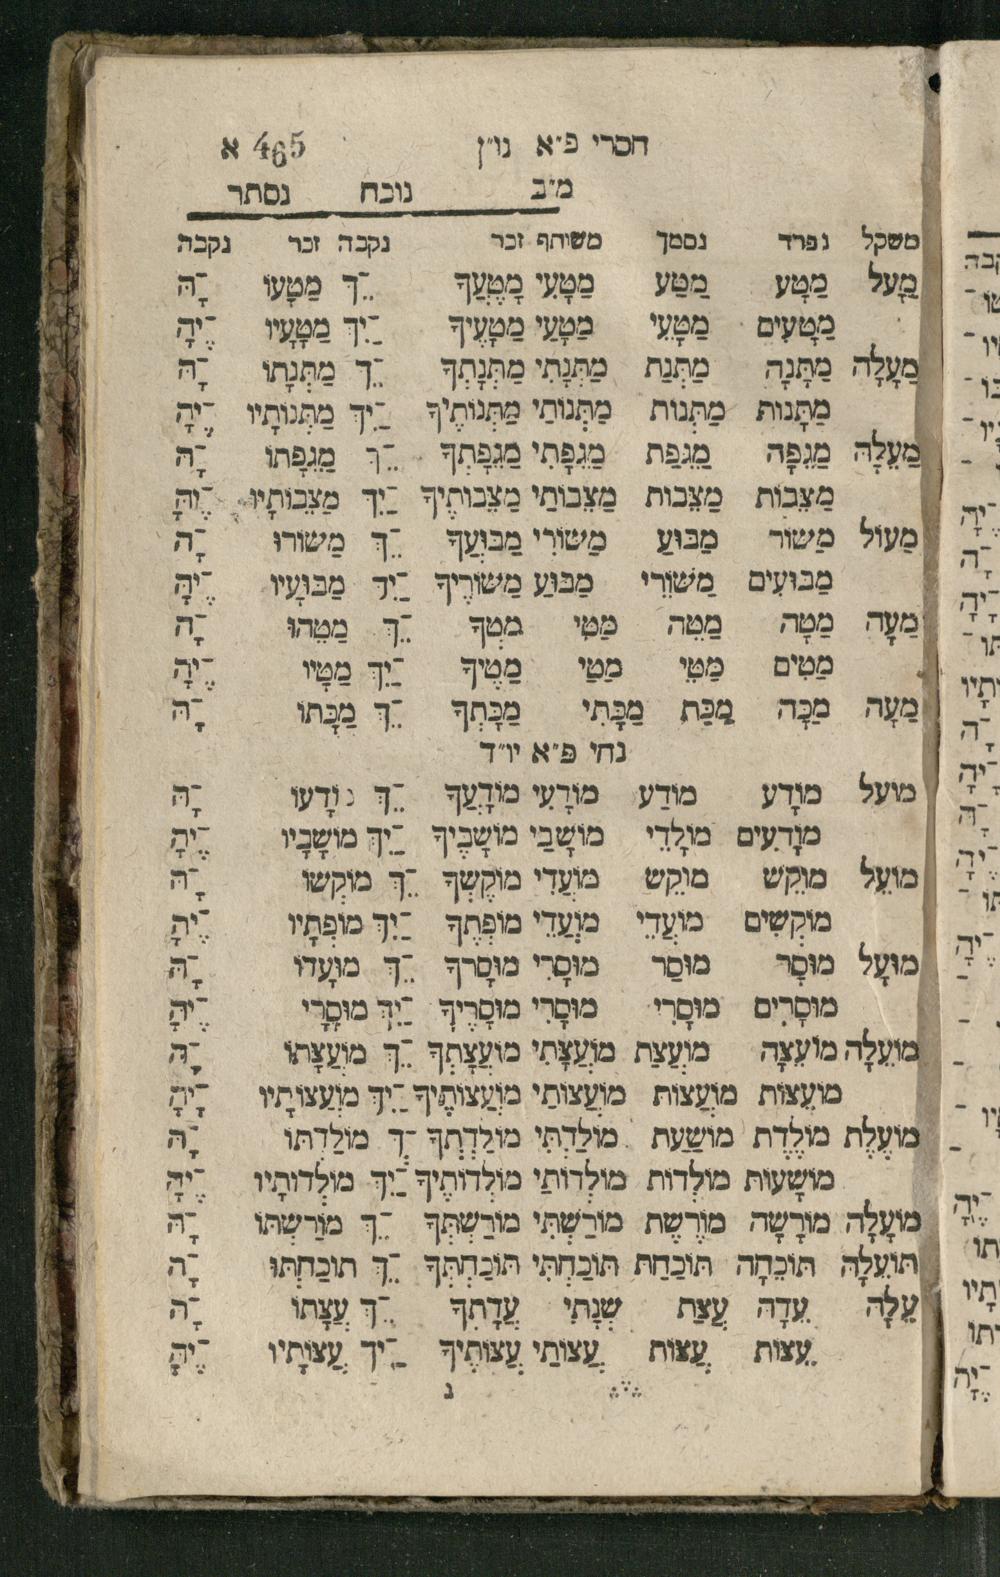 חסרי פ״א נו״ן 465 א
מ״ב נוכח נסתר
משקל נפרד נסמך משותף זכר נקבה זכר נקבה
מַעַל מַטָּע מַטַּע מַטָּעִי מַטָּעֲךָ ־ֵךְ מַטָּעוֹ ־ָהּ
מַטָּעִים מַטָּעֵי מַטָּעַי מַטָּעֶיךָ ־ַיִךְ מַטָּעָיו ־ֶיהָ
מַעָלָה מַתָּנָה מַתְּנַת מַתְּנָתִי מַתְּנָתְךָ ־ֵךְ מַתְּנָתוֹ ־ָהּ
מַתָּנוֹת מַתְּנוֹת מַתְּנוֹתַי מַתְּנוֹתֶיךָ ־ַיִךְ מַתְּנוֹתָיו ־ֶיהָ
מַעֵלָה מַגֵּפָה מַגֵּפַת מַגֵּפָתִי מַגֵּפָתְךָ ־ֵךְ מַגֵּפָתוֹ ־ָהּ
מַצֵּבוֹת מַצֵּבוֹת מַצֵּבוֹתַי מַצֵּבוֹתֶיךָ ־ַיִךְ מַצֵּבוֹתָיו ־ֶיהָ
מַעוֹל מַשּׂוֹר מַבּוּעַ מַשּׂוֹרִי מַבּוּעֲךָ ־ֵךְ מַשּׂוֹרוֹ ־ָהּ
מַבּוּעִים מַשּׂוֹרֵי מַבּוּעַ מַשּׂוֹרֶיךָ ־ַיִךְ מַבּוּעָיו ־ֶיהָ
מַעֶה מַטֶּה מַטֵּה מַטִּי מַטְּךָ ־ֵךְ מַטֵּהוּ ־ָהּ
מַטִּים מַטֵּי מַטַּי מַטֶּיךָ ־ַיִךְ מַטָּיו ־ֶיהָ
מַעָה מַכָּה מַכַּת מַכָּתִי מַכָּתְךָ ־ֵךְ מַכָּתוֹ ־ָהּ
נחי פ״א יו״ד
מוֹעַל מוֹדָע מוֹדַע מוֹדָעִי מוֹדָעֲךָ ־ֵךְ וֹדָעוֹ ־ָהּ
מוֹדָעִים מוֹלָדֵי מוֹשָׁבַי מוֹשָׁבֶיךָ ־ַיִךְ מוֹשָׁבָיו ־ֶיהָ
מוֹעֵל מוֹקֵשׁ מוֹקֵשׁ מוֹעֲדִי מוֹקֶשְׁךָ ־ֵךְ מוֹקְשׁוֹ ־ָהּ
מוֹקְשִׁים מוֹעֲדֵי מוֹעֲדַי מוֹפְתֶךָ ־ַיִךְ מוֹפְתָיו ־ֶיהָ
מוּעָל מוּסָר מוּסַר מוּסָרִי מוּסָרְךָ ־ֵךְ מוּעָדוֹ ־ָהּ
מוּסָרִים מוּסָרֵי מוּסָרַי מוּסָרֶיךָ ־ַיִךְ מוּסָרָי ־ֶיהָ
מוֹעֵלָה מוֹעֵצָה מוֹעֲצַת מוֹעֲצָתִי מוֹעֲצָתְךָ ־ֵךְ מוֹעֲצָתוֹ ־ָהּ
מוֹעֵצוֹת מוֹעֲצוֹת מוֹעֲצוֹתַי מוֹעֲצוֹתֶיךָ ־ַיִךְ מוֹעֲצוֹתָיו ־ֶיהָ
מוֹעֶלֶת מוֹלֶדֶת מוֹשַׁעַת מוֹלַדְתִּי מוֹלַדְתְּךָ ־ֵךְ מוֹלַדְתּוֹ ־ָהּ
מוֹשָׁעוֹת מוֹלְדוֹת מוֹלְדוֹתַי מוֹלְדוֹתֶיךָ ־ַיִךְ מוֹלְדוֹתָיו ־ֶיהָ
מוֹעָלָה מוֹרָשָׁה מוֹרֶשֶׁת מוֹרַשְׁתִּי מוֹרַשְׁתְּךָ ־ֵךְ מוֹרַשְׁתּוֹ ־ָהּ
תּוֹעֵלָה תּוֹכֵחָה תּוֹכַחַת תּוֹכַחְתִּי תּוֹכַחְתְּךָ ־ֵךְ תּוֹכַחְתּוֹ ־ָהּ
עֵלָה עֵדָה עֲצַת שְׁנָתִי עֲדָתְךָ ־ֵךְ עֲצָתוֹ ־ָהּ
עֵצוֹת עֲצוֹת עֲצוֹתַי עֲצוֹתֶיךָ ־ַיִךְ עֲצוֹתָיו ־ֶיהָ